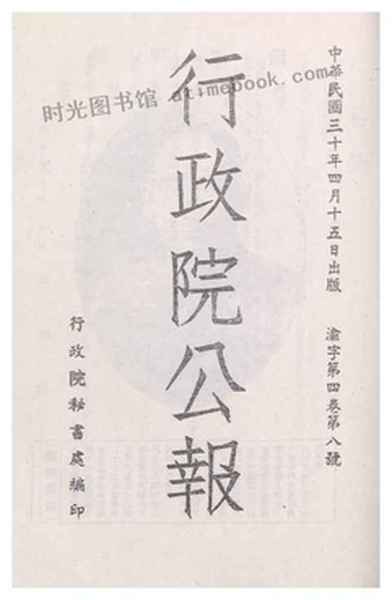 中華民國三十年四月十五日出版 渝字第四卷第八號
行政院公報
行政院秘書處編印
时光图书馆 atimebook.com